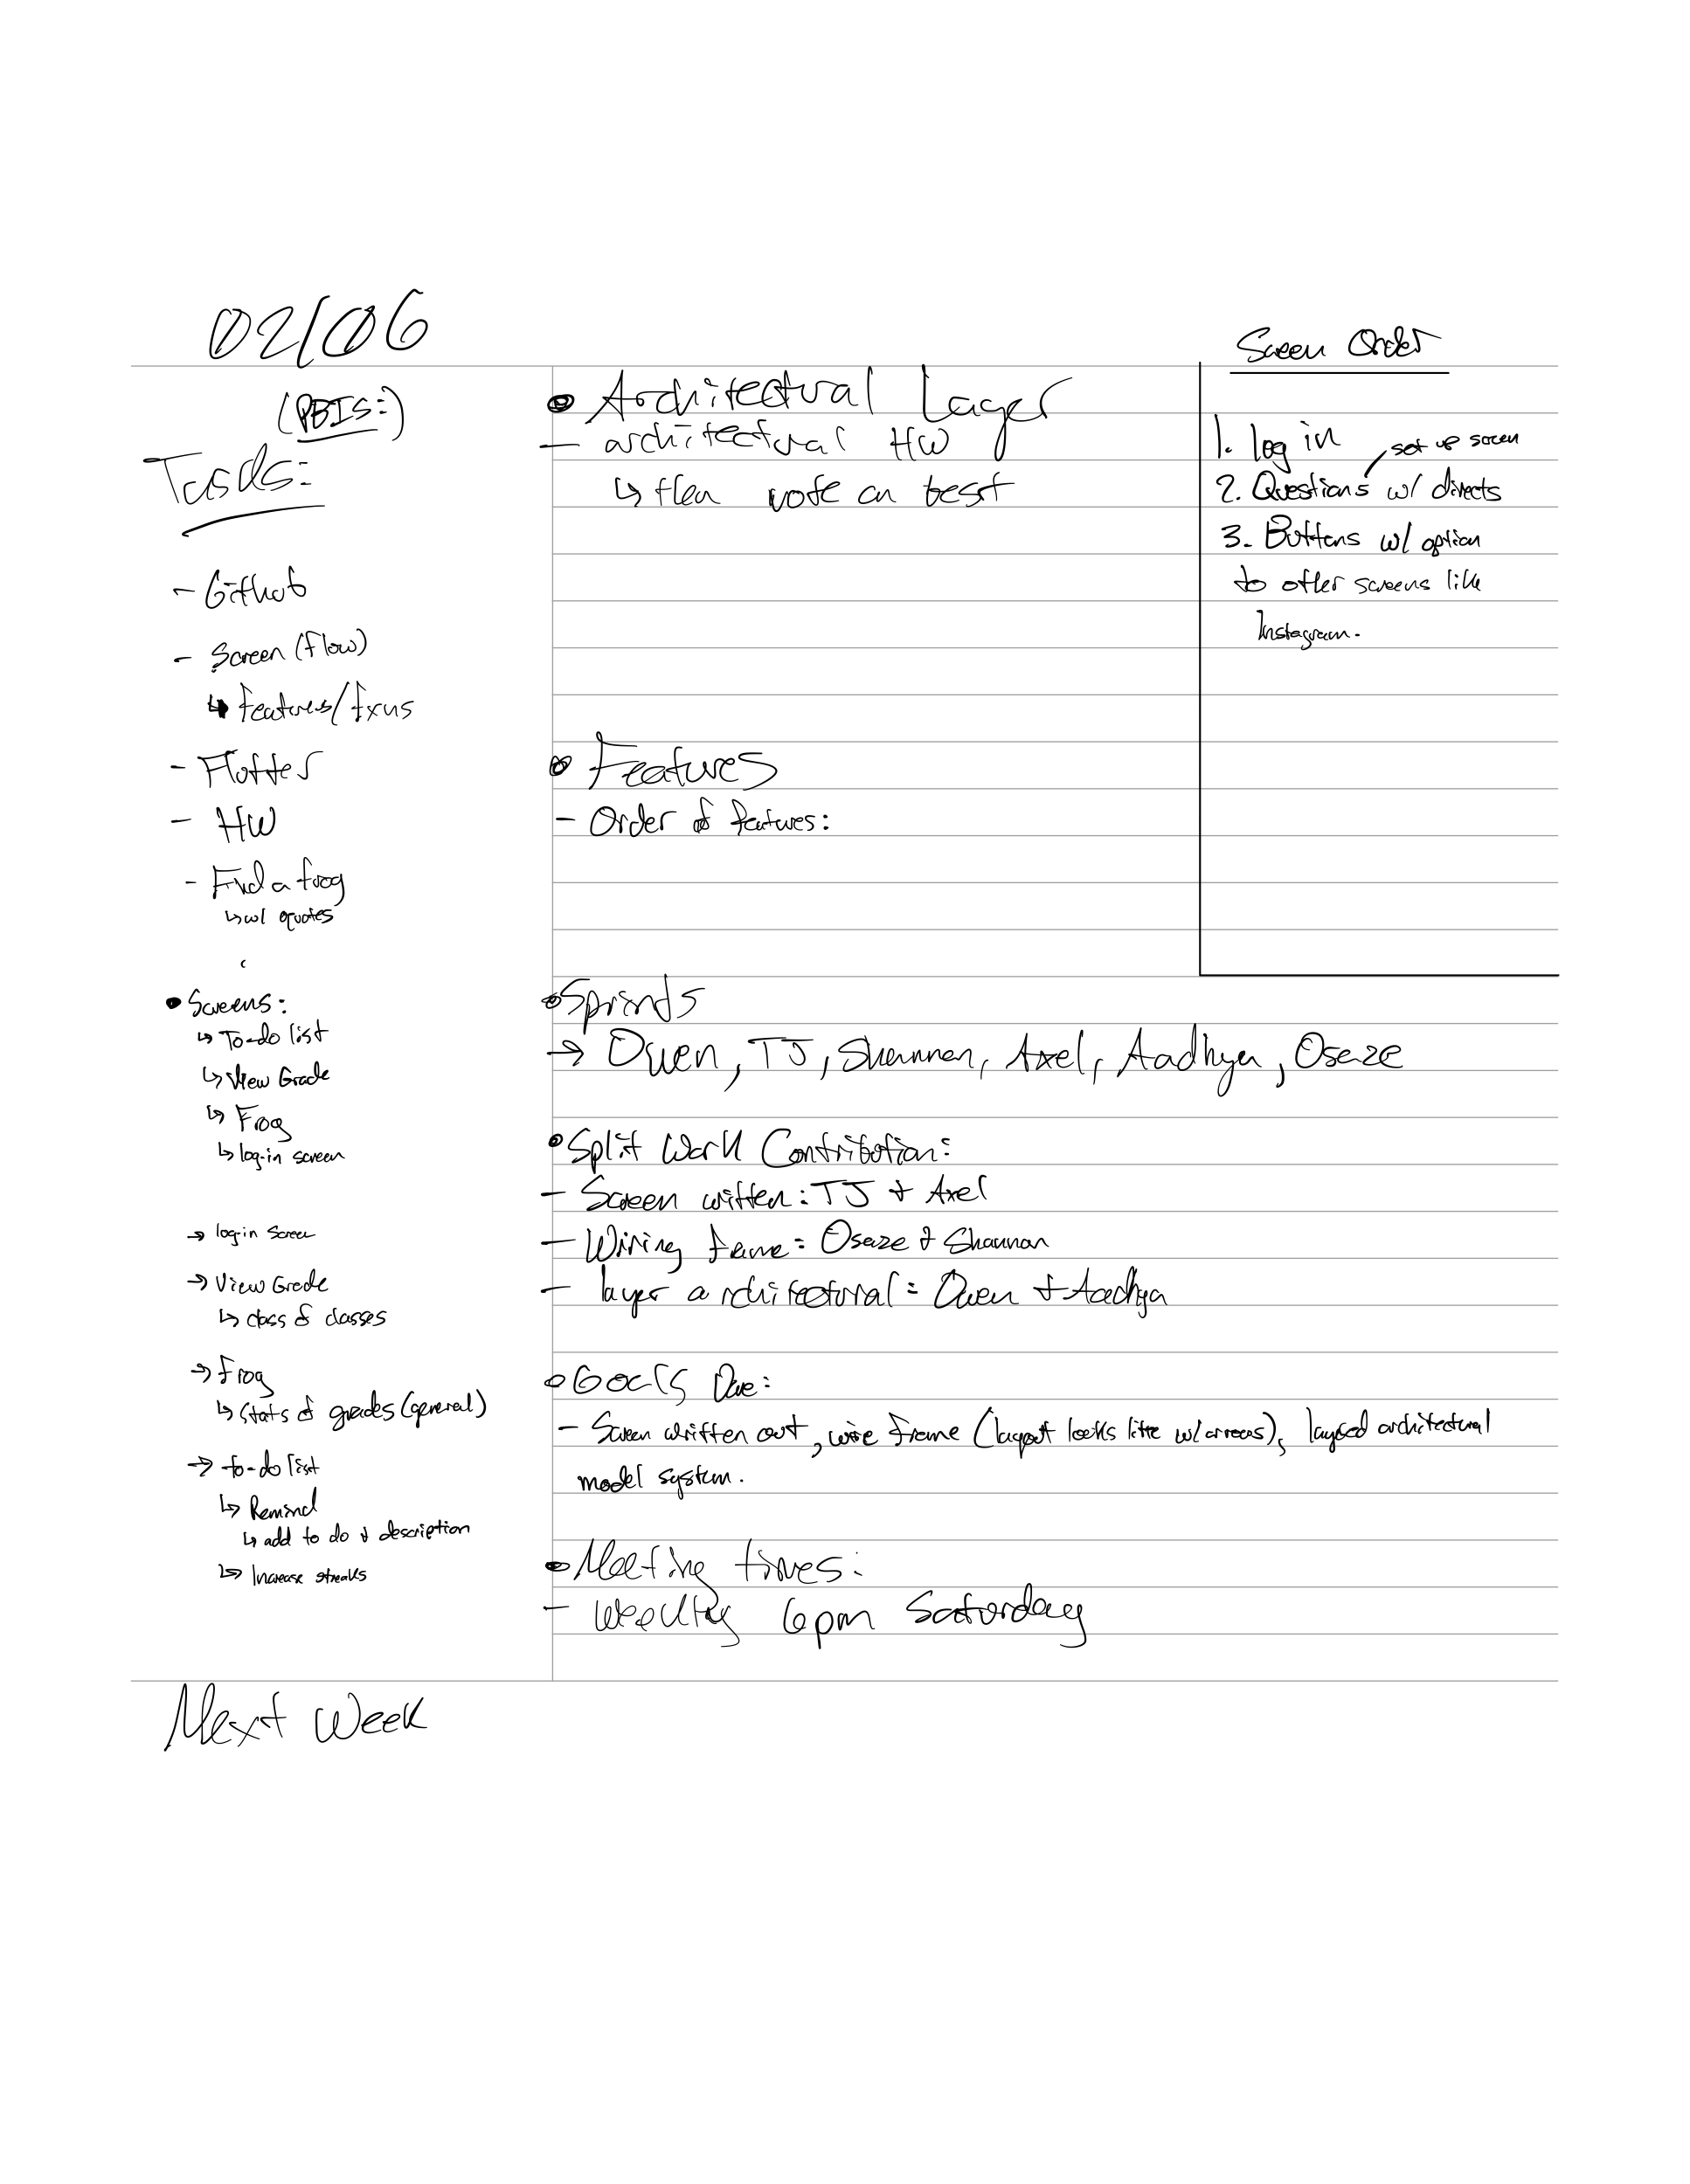 02/06
(PBIS:)
Tasks:
- Github
- Screen (flow)
↳ features/
- Flutter
- HW
- Find a frog
↳ w/ quotes
• Screens:
↳ To-do list
↳ View Grade
↳ Frog
↳ log-in screen
→ log-in screen
→ View Grade
↳ class & classes
→ frog
↳ stats of grades (general)
→ to-do list
↳ Remind
↳ add to do & description
↳ Increase streaks
• Architectural Layer
- architectural HW
↳ then vote on best
• Features
- Order of features:
• Sprints
→ Owen, TJ, Shannon, Axel, Aadhya, Osaze
• Split Work Contribution:
- Screen written: TJ & Axel
- Wiring frame: Osaze & Shannon
- layer architectural: Owen & Aadhya
• Goals Due:
- Screen written out, wire frame (layout looks like w/ arrows), layered architectural
model system.
• Meeting times:
- Weekly 6pm Saturday
Screen Order
1. log in
set up screen
2. Questions w/ directs
3. Buttons w/ option
to other screens like
Instagram.
Next Week